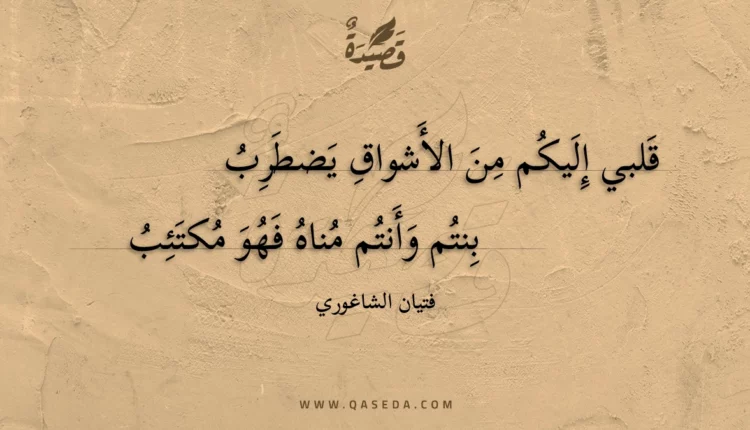 قَصِيدَةٌ
قَلبي إِلَيكُم مِنَ الأَشواقِ يَضطَرِبُ
بِنتُم وَأَنتُم مُناهُ فَهُوَ مُكتَئِبُ
فتيان الشاغوري
WWW.QASEDA.COM